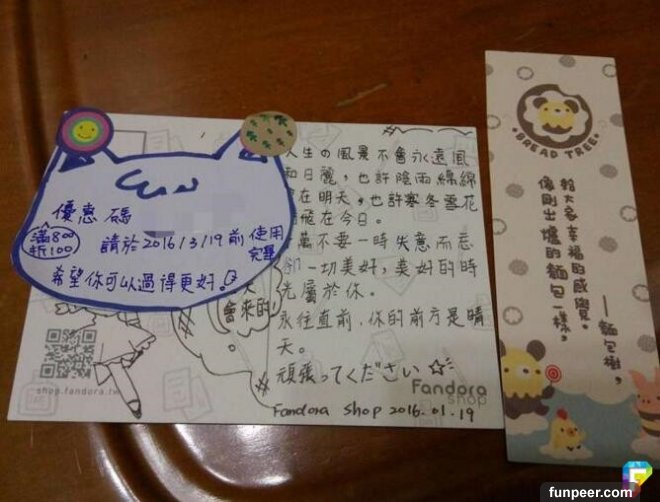 優惠碼
滿800
折100
請於2016/3/19前使用
完畢
希望你可以過得更好!
人生の風景不會永遠風
和日麗,也許陰雨綿綿
在明天,也許寒冬雪花
飛在今日。
萬不要一時失意而忘
卻一切美好,美好的時
光屬於你。
永往直前,你的前方是晴
天。
頑張ってください☆
會來的
Fandora Shop 2016.01.19
shop.fandora.tw
Fandora
shop
BREAD TREE
給大家幸福的感覺。
像剛出爐的麵包一樣,
——麵包樹,
funpeer.com